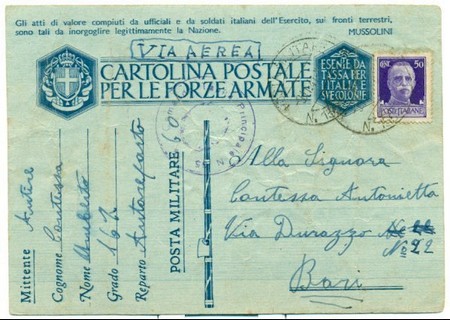 Gli atti di valore compiuti da ufficiali e da soldati italiani dell'Esercito, sui fronti terrestri,
sono tali da inorgoglire legittimamente la Nazione.
MUSSOLINI
VIA AEREA
CARTOLINA POSTALE
PER LE FORZE ARMATE
ESENTE DA
TASSA PER
L'ITALIA E
SVE COLONIE
CENT. 50
POSTE ITALIANE
Alla Signora
Contessa Antonietta
Via Durazzo
No 22
Bari
Mittente
Cognome Contessa
Nome Umberto
Grado
Reparto Autoreparto
POSTA MILITARE
Principale